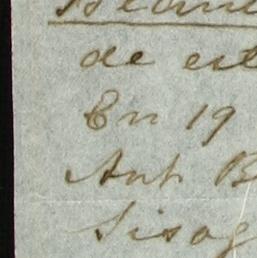 de est
En 19
Ant B
Sisog